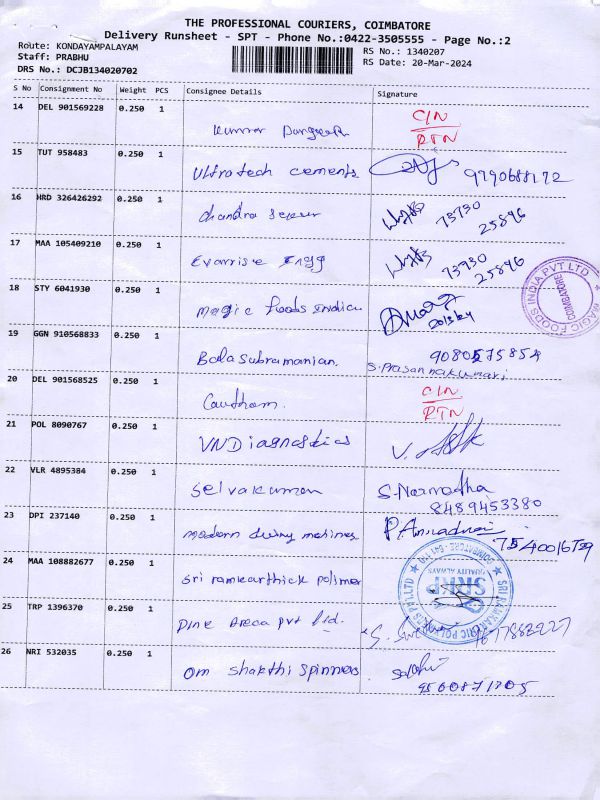 THE PROFESSIONAL COURIERS, COIMBATORE
Delivery Runsheet - SPT - Phone No.:0422-3505555 - Page No.:2
Route: KONDAYAMPALAYAM
RS No.: 1340207
Staff: PRABHU
RS Date: 20-Mar-2024
DRS No.: DCJB134020702
S No Consignment No Weight PCS Consignee Details Signature
14 DEL 901569228 0.250 1 Kumar C/N
RTN
15 TUT 958483 0.250 1 Ultratech cements 9790688172
16 HRD 326426292 0.250 1 chandra 73730
25896
17 MAA 105409210 0.250 1 Engg 73730
25896
18 STY 6041930 0.250 1 Magic foods India
20/3/24
MAGIC FOODS INDIA PVT LTD
COIMBATORE
19 GGN 910568833 0.250 1 Balasubramanian. 9080575854
S.Prasannakumari
20 DEL 901568525 0.250 1 Gautham. C/N
RTN
21 POL 8090767 0.250 1 VN Diagnostics V.
22 VLR 4895384 0.250 1 Selvakumar S.Narmadha
8489453380
23 DPI 237140 0.250 1 modern P.
24 MAA 108882677 0.250 1 Sri ramkarthick polimer
SRKP
QUALITY ALWAYS
COIMBATORE
25 TRP 1396370 0.250 1 Pink pvt ltd.
26 NRI 532035 0.250 1 Om Shakthi Spinners
9500871705